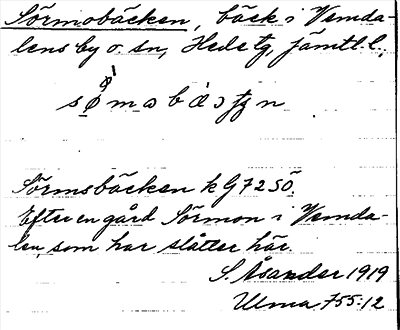 Sörmobäcken, bäck i Vemda-
lens by o. sn, Hede tg, Jämtl. l.
Sörmsbäcken k G7250.
Efter en gård Sörmon i Vemda-
len, som har slåtter här.
S. Åsander 1919
Ulma 755:12